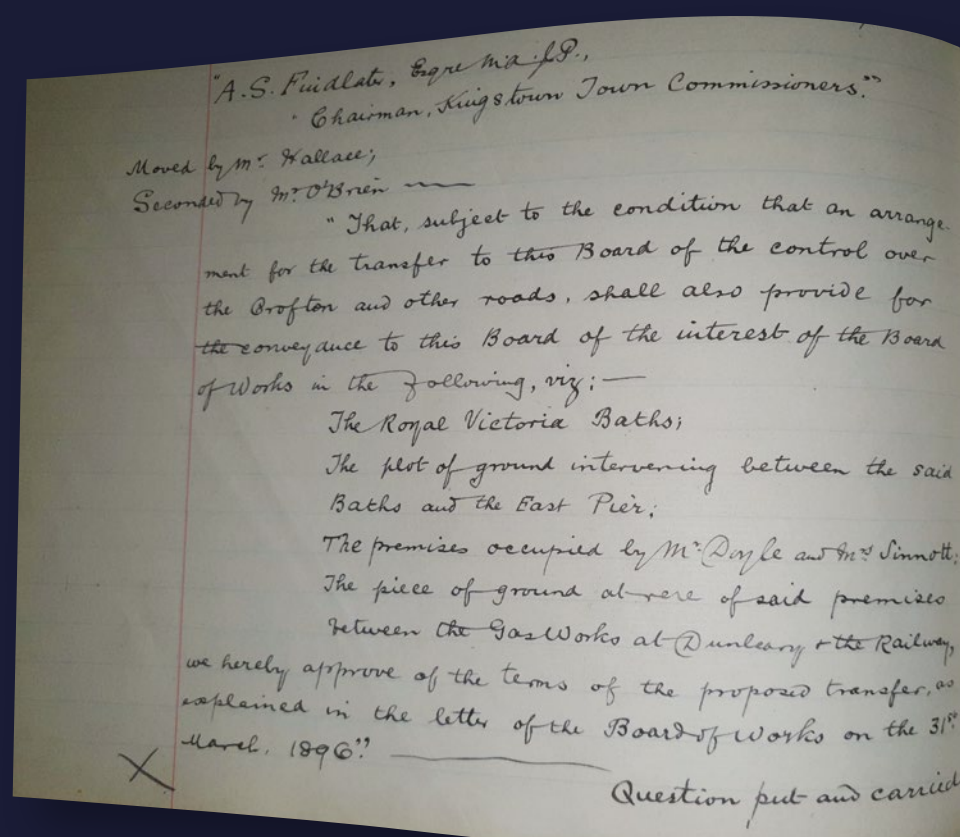 "A. S. Findlater, Esqre M.A. J.P.,
" Chairman, Kingstown Town Commissioners.""
Moved by Mr. Wallace;
Seconded by Mr. O'Brien ——
" That, subject to the condition that an arrange-
ment for the transfer to this Board of the control over
the Crofton and other roads, shall also provide for
the conveyance to this Board of the interest of the Board
of Works in the following, viz; —
The Royal Victoria Baths;
The plot of ground intervening between the said
Baths and the East Pier;
The premises occupied by Mr. Doyle and Mrs Sinnott;
The piece of ground at rere of said premises
between the Gas Works at Dunleary & the Railway,
we hereby approve of the terms of the proposed transfer, as
explained in the letter of the Board of Works on the 31st
March, 1896" ——
Question put and carried